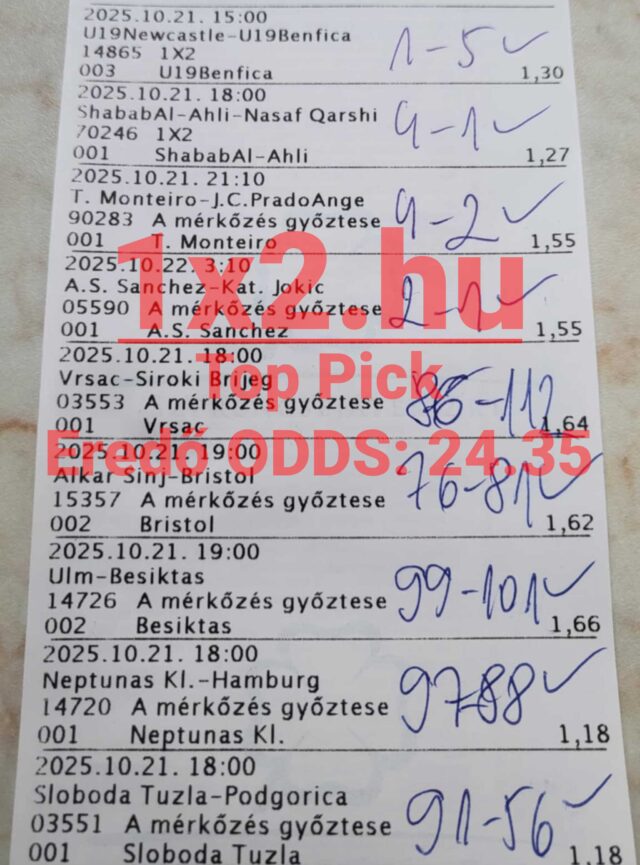 2025.10.21. 15:00
U19Newcastle-U19Benfica
14865 1X2
1-5 ✓
003 U19Benfica 1,30
2025.10.21. 18:00
ShababAl-Ahli-Nasaf Qarshi
70246 1X2
4-1 ✓
001 ShababAl-Ahli 1,27
2025.10.21. 21:10
T. Monteiro-J.C.PradoAnge
90283 A mérkőzés győztese
4-2 ✓
001 T. Monteiro 1,55
2025.10.22. 3:10
A.S. Sanchez-Kat. Jokic
05590 A mérkőzés győztese
2-1 ✓
001 A.S. Sanchez 1,55
1x2.hu
Top Pick
Eredő ODDS: 24.35
2025.10.21. 18:00
Vrsac-Siroki Brijeg
03553 A mérkőzés győztese
86-112
001 Vrsac 1,64
2025.10.21. 19:00
Alkar Sinj-Bristol
15357 A mérkőzés győztese
76-81 ✓
002 Bristol 1,62
2025.10.21. 19:00
Ulm-Besiktas
14726 A mérkőzés győztese
99-101 ✓
002 Besiktas 1,66
2025.10.21. 18:00
Neptunas Kl.-Hamburg
14720 A mérkőzés győztese
97-88 ✓
001 Neptunas Kl. 1,18
2025.10.21. 18:00
Sloboda Tuzla-Podgorica
03551 A mérkőzés győztese
91-56 ✓
001 Sloboda Tuzla 1,18